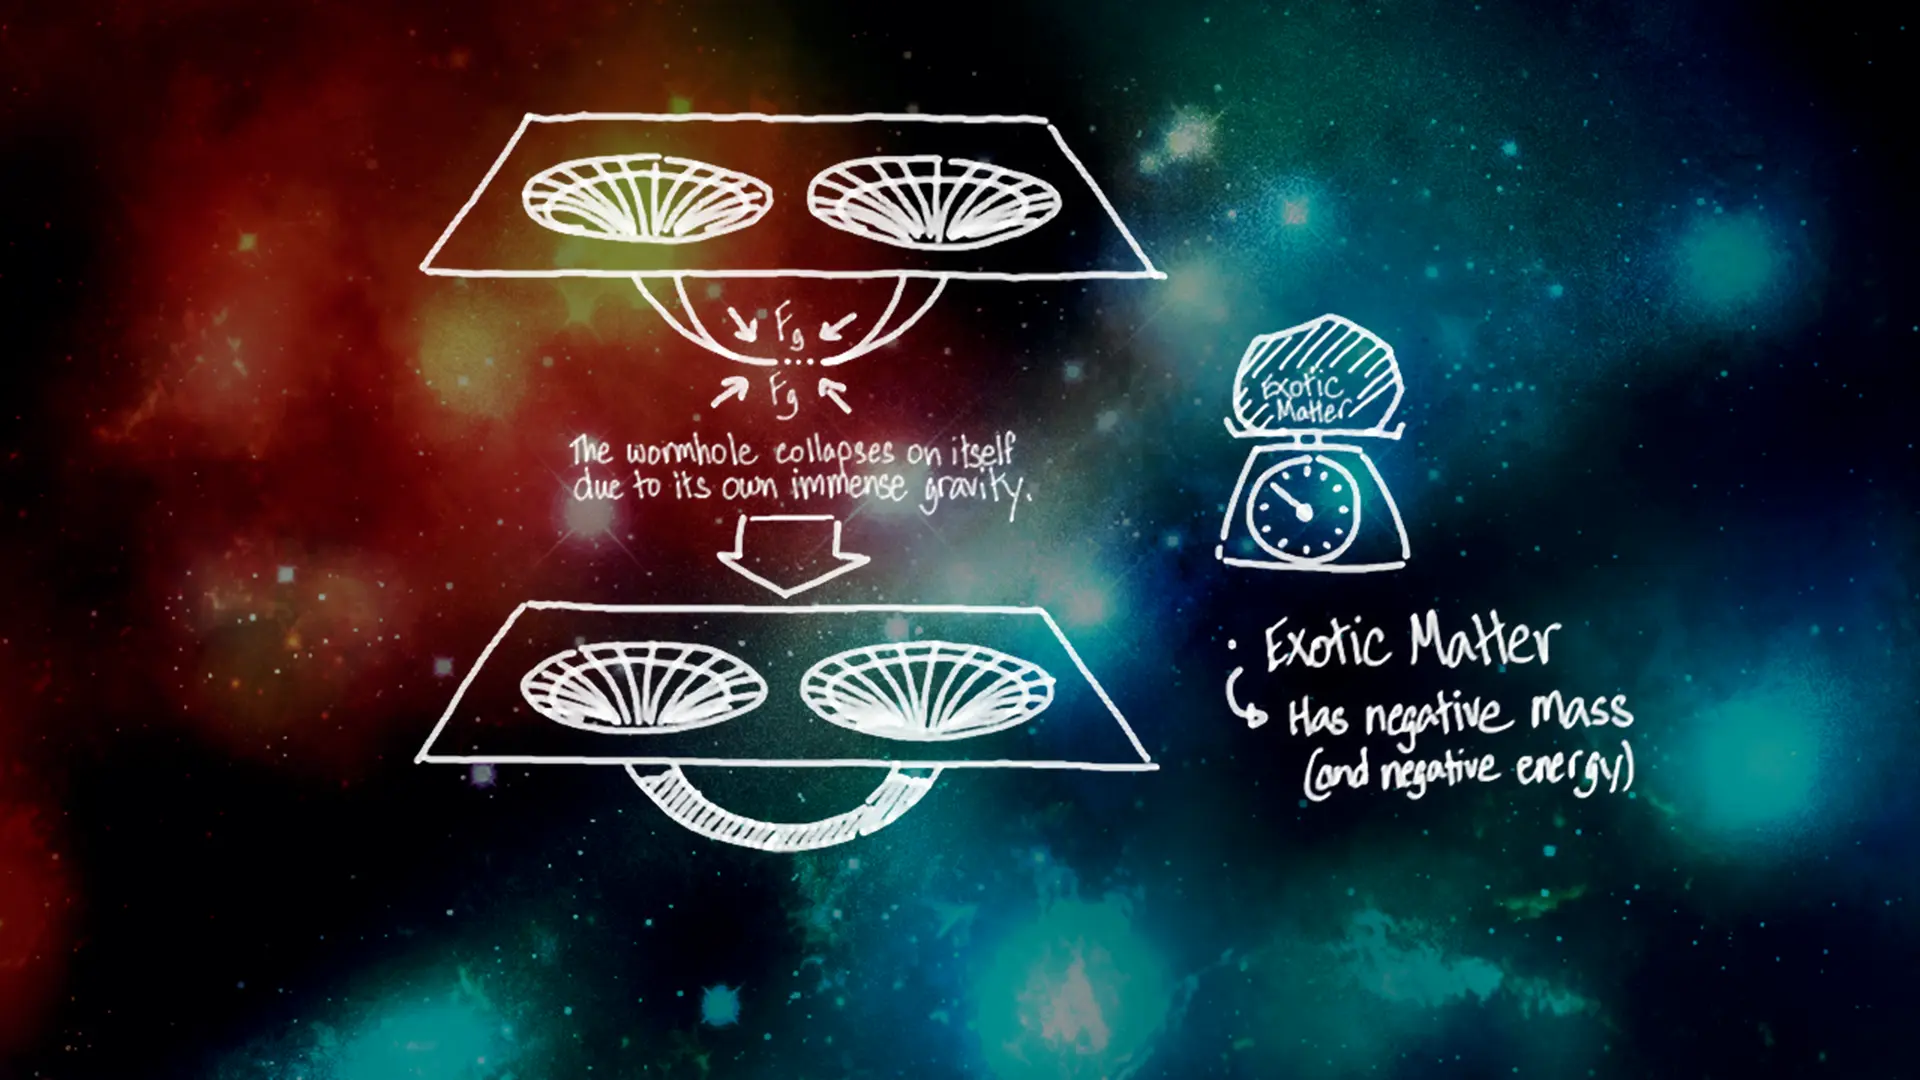 Fg
Fg
The wormhole collapses on itself
due to its own immense gravity.
Exotic
Matter
· Exotic Matter
Has negative mass
(and negative energy)